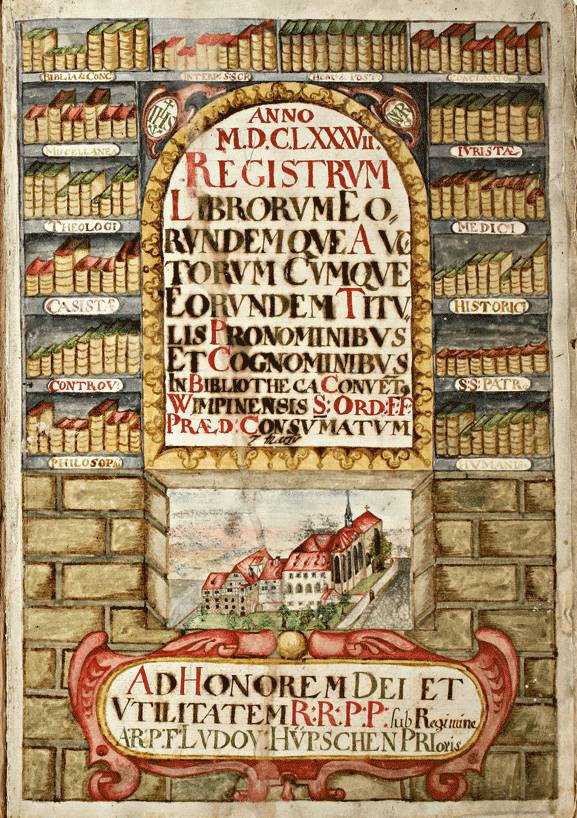 BIBLIA & CONC
INTERP: S: SCR
HOMI & POST:
CONCIONATO
IHS
MRA
MISCELLANE
IURISTÆ
THEOLOGI
MEDICI
CASISTÆ
HISTORICI
CONTROV:
S:S: PATR
PHILOSOP
HUMANIS
ANNO
M.D.C.LXXXVII.
REGISTRVM
LIBRORVM EO,,
RVNDEMQVE AVC
TORVM CVMQVE
EORVNDEM TITV,
LIS PRONOMINIBVS
ET COGNOMINIBVS
IN BIBLIOTHECA CONVĒT,
WIMPINENSIS S: ORD: FF:
PRÆD: CONSVMATVM
AD HONOREM DEI ET
VTILITATEM R:R:P:P: sub Regimine
A:R:P:F: LVDOV: HÜPSCHEN PRIoris